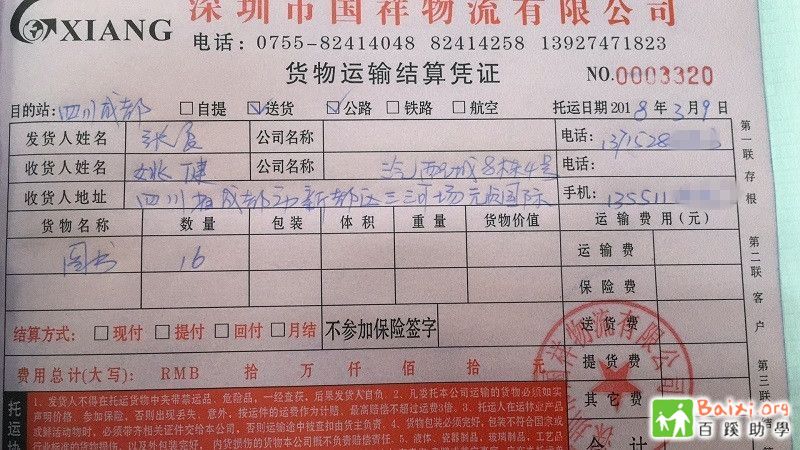 XIANG 深圳市国祥物流有限公司
电话：0755-82414048 82414258 13927471823
货物运输结算凭证 NO.0003320
目的站：四川成都 □自提 ☑送货 ☑公路 □铁路 □航空 托运日期2018年3月9日
发货人姓名 张 公司名称 电话：1371528
收货人姓名 姚健 公司名称 城8栋4号 电话：
收货人地址 四川省成都市新都区三河场元贞国际 手机：13551
货物名称 数量 包装 体积 重量 货物价值 运输费用(元)
图书 16 运输费
保险费
结算方式：□现付 □提付 □回付 □月结 不参加保险签字 送货费
费用总计(大写)： RMB 拾 万 仟 佰 拾 元 提货费
其它费
合计
第一联存根
第二联客户
第三联
祥物流有限公司
托运协
1、发货人不得在托运货物中夹带禁运品，危险品，一经查获，后果发货人自负。2、凡委托本公司运输的货物必须如实
声明价格，参加保险，否则出现丢失、意外，按运件的运费作为计赔，最高赔偿不超过运费3倍。3、托运人在运林业产品
或鲜活动物时，必须带齐相关证件交给本公司，否则运输途中被查扣由货主负责。4、货物包装必须完好，包装不符合国家或
行业标准的货物损失，以及外包装完好，内货损伤的货物本公司概不负赔偿责任。5、液体、瓷器制品，玻璃制品，工艺品
Baixi.org
百蹊助學